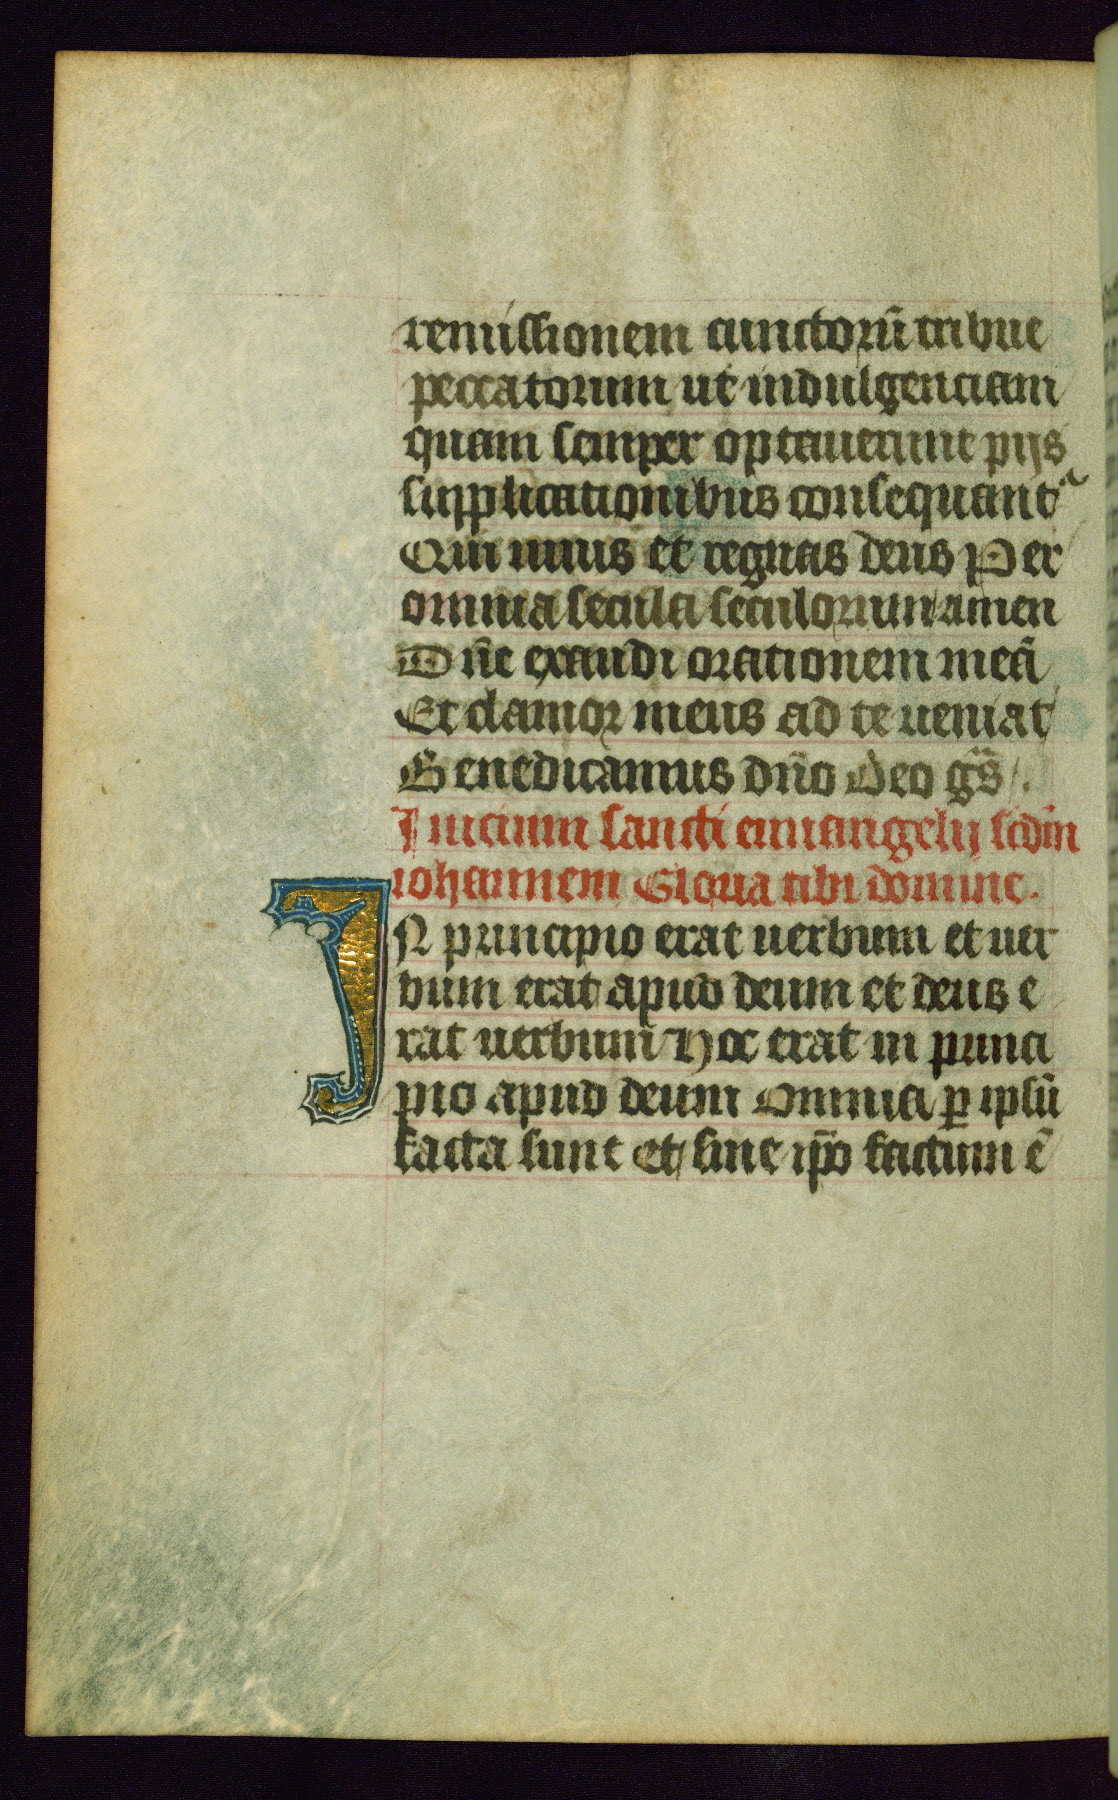 remissionem cunctorū tribue
peccatorum ut indulgenciam
quam semper optauerunt pijs
supplicationibus consequant᷑
Qui uiuis et regnas deus Per
omnia secula seculorum amen
Dn̄e exaudi orationem meā
Et clamor meus ad te ueniat
Benedicamus dn̄o Deo gr̄s
Inicium sancti euuangelij scd̄m
iohannem Gloria tibi domine.
IN principio erat uerbum et uer
bum erat apud deum et deus e
rat uerbum Hoc erat in princi
pio apud deum Omnia ꝑ ipsū
facta sunt et sine ip̄o factum ē